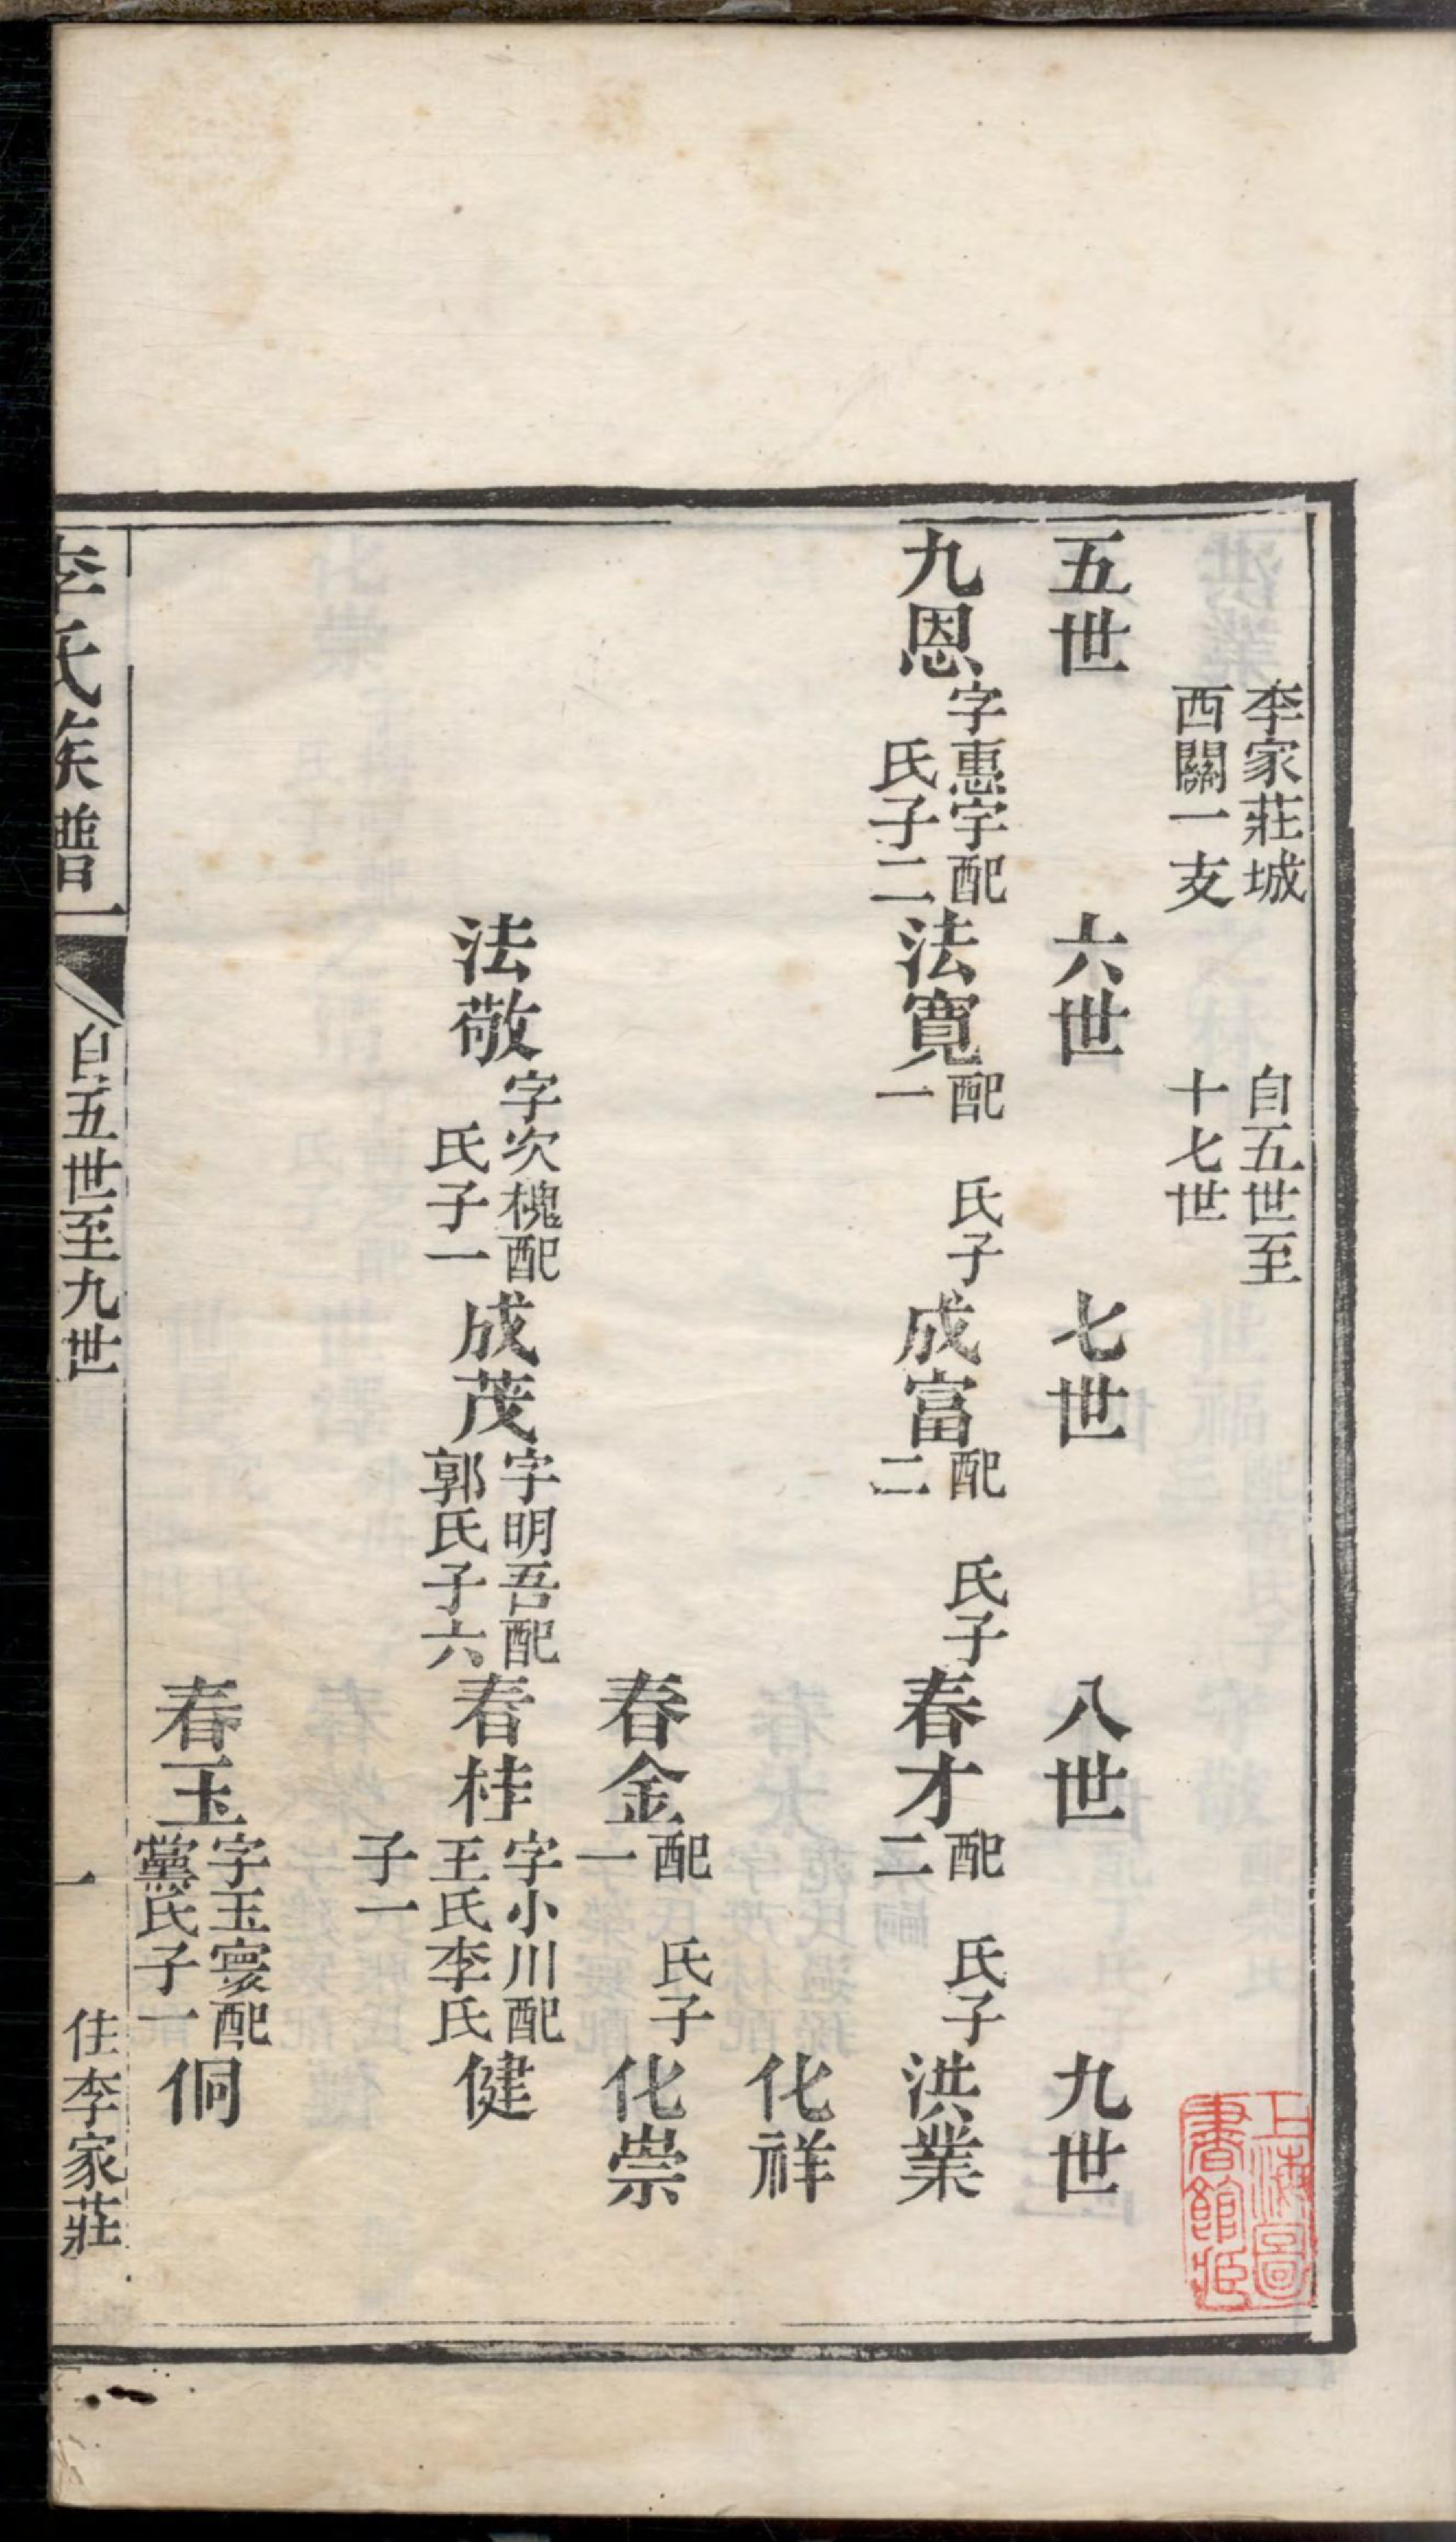 李家莊城
西關一支
自五世至
十七世
五世
六世
七世
八世
九世
九恩
字惠宇配
氏子二
法寬
配 氏子
一
成富
配 氏子
二
春才
配 氏子
二
洪業
化祥
春金
配 氏子
一
化崇
法敬
字次槐配
氏子一
成茂
字明吾配
郭氏子六
春桂
字小川配
王氏李氏
子一
健
春玉
字玉寰配
黨氏子一
侗
李氏族譜
自五世至九世
一
住李家莊
上海圖
書館藏